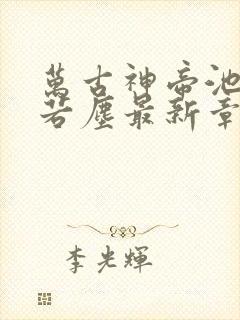 萬古神帝池
若塵最新章
李光輝